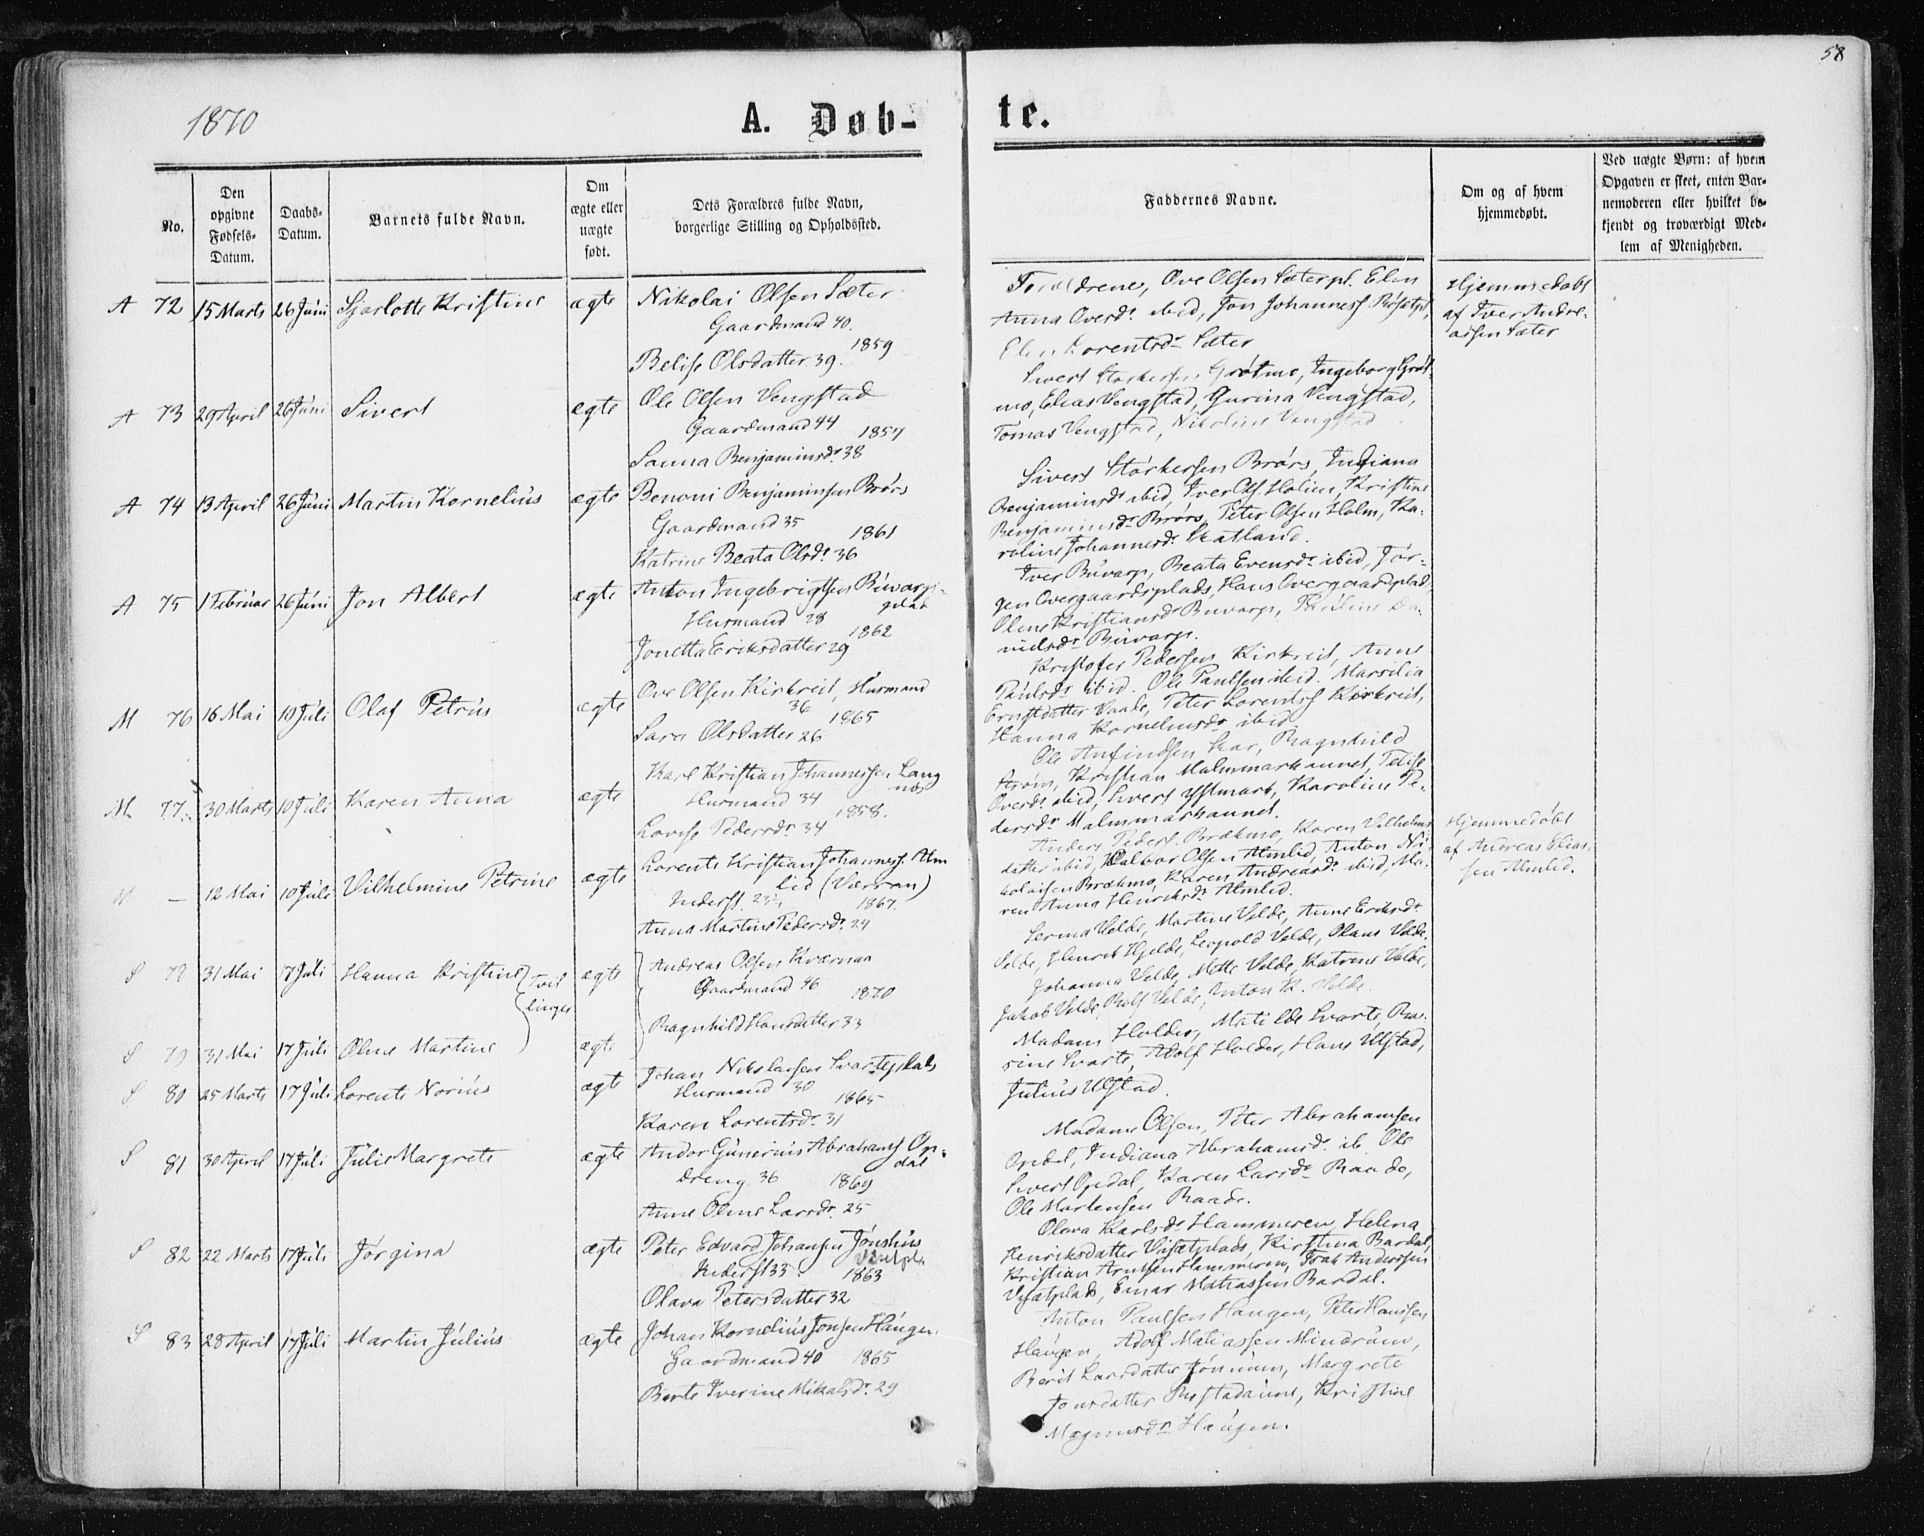 58
1870
A. Døb-
te.
No.
Den opgivne Fødsels-Datum.
Daabs-Datum.
Barnets fulde Navn.
Om ægte eller uægte født.
Dets Forældres fulde Navn, borgerlige Stilling og Opholdssted.
Faddernes Navne.
Om og af hvem hjemmedøbt.
Ved uægte Børn: af hvem Opgaven er skeet, enten Barnemoderen eller hvilket bekjendt og troværdigt Medlem af Menigheden.
A 72 15 Marts 26 Juni Sjarlotte Kristine ægte Nikolai Olsen Sæter
Gaardmand 40.
1859
Belise Olsdatter 39.
Forældrene, Ove Olsen Sæterpl. Elen
Anna Oversdr ibid, Jon Johanness.
Elen Lorentsdr Sæter
Hjemmedøbt
af Iver Andre-
assen Sæter
A 73 29 April 26 Juni Sivert ægte Ole Olsen Vengstad
Gaardmand 44
1857
Sanna Benjaminsdr 38
Sivert Størkersen Grøtmo, Ingeborg Grøt-
mo, Elias Vengstad, Gurina Vengstad,
Tomas Vengstad, Nikoline Vengstad
A 74 13 April 26 Juni Martin Kornelius ægte Benoni Benjaminsen Brørs
Gaardmand 35
1861
Katrine Beata Olsdr 36
Sivert Størkersen Brørs, Indiana
Benjaminsdr ibid, Iver Ols. Holm, Kristine
Benjaminsdr Brørs, Peter Olsen Holm, Ka-
roline Johannesdr Skatland.
A 75 1 Februar 26 Juni Jon Albert ægte Anton Ingebrigtsen Buvarp-
plad
Husmand 28
1862
Jonetta Eriksdatter 29
Iver Buvarp, Beata Evensdr ibid, Jør-
gen Overgaardsplads, Hans Overgaardsplad,
Oline Kristiansdr Buvarp, Pauline Da-
nielsdr Buvarp.
M 76 16 Mai 10 Juli Olaf Petrus ægte Ove Olsen Kirkreit, Husmand
36
1865
Sara Olsdatter 26
Kristofer Pedersen Kirkreit, Anne
Paulsdr ibid. Ole Paulsen ibid. Marsilia
Ernstdatter Vaade, Peter Lorentss Kirkreit,
Hanna Kornelsdr ibid
M 77 30 Marts 10 Juli Karen Anna ægte Karl Kristian Johannessen Lang
næs
Husmand 34
1858.
Lovise Pedersdr 34
Ole Anfindsen Skar, Ragnhild
Strøm, Kristian Malmmarkaunet, Telise
Oversdr ibid, Sivert Ystmark, Karoline Pe-
dersdr Malmmarkaunet.
M - 12 Mai 10 Juli Vilhelmine Petrine ægte Lorents Kristian Johanness. Alm
lid (Værran)
Inderst.
1867.
Anna Martine Pedersdr 24
Anders Peders. Brækmo, Karen Vilhelms
datter ibid, Halvor Olsen Almlid, Anton Ni-
kolaisen Brækmo, Karen Andreasdr ibid, Ma-
ren Anna Henriksdr Almlid.
Hjemmedøbt
af Andreas Elias
sen Almlid.
S 78 31 Mai 17 Juli Hanna Kristine Tvil
linger ægte Andreas Olsen Kværnaa
Gaardmand 46
1870
Ragnhild Hansdatter 33
Serina Velde, Martine Velde, Anne Eriksdr
Selde, Henrik Hjelde, Leopold Velde, Olaus Velde.
S 79 31 Mai 17 Juli Oline Martine ægte
Johanna Velde, Mette Velde, Katrine Velde,
Jakob Velde, Rolf Velde, Anton K. Velde.
S 80 25 Marts 17 Juli Lorents Norius ægte Johan Nikolaisen Svarteplads
Husmand 30
1865
Karen Lorentsdr 31
Madam Holder, Matilde Svarte, Ra-
sine Svarte, Adolf Holder, Hans Ulstad,
Julius Ulstad.
S 81 30 April 17 Juli Julie Margrete ægte Andor Gunerius Abrahams Op-
dal
Dreng 36
1869
Anne Oline Larsdr 25
Madam Olsen, Peter Abrahamsen
Opdal, Indiana Abrahamsdr ib. Ole
Sivert Opdal, Karen Larsdr Raade,
Ole Mortensen Raade.
S 82 22 Marts 17 Juli Jørgina ægte Peter Edvard Johansen Jønshus
Inderst 33
1863
Olava Petersdatter 32
Olava Karlsdr Hammeren, Helena
Henriksdatter Visætplads, Kirstina Bardal,
Kristian Arntsen Hammeren, Anderssen
Visætplads, Einar Matiassen Bardal.
S 83 28 April 17 Juli Martin Julius ægte Johan Kornelius Jonsen Haugen
Gaardmand 40
1865
Berte Iverine Mikalsdr 29
Anton Paulsen Haugen, Peter Hanssen
Haugen, Adolf Matiassen Mindrum,
Berit Larsdatter, Margrete
Jonsdatter, Kristine
Magnusdr Haugen.